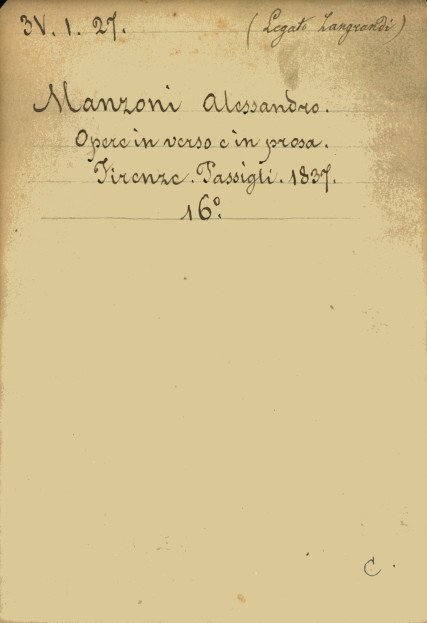 3V. 1. 27. (Legato Zangrandi)
Manzoni Alessandro.
Opere in verso e in prosa.
Firenze. Passigli. 1837.
16º.
C.